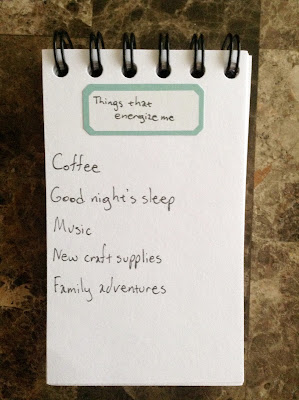 Things that
energize me
Coffee
Good night's sleep
Music
New craft supplies
Family adventures